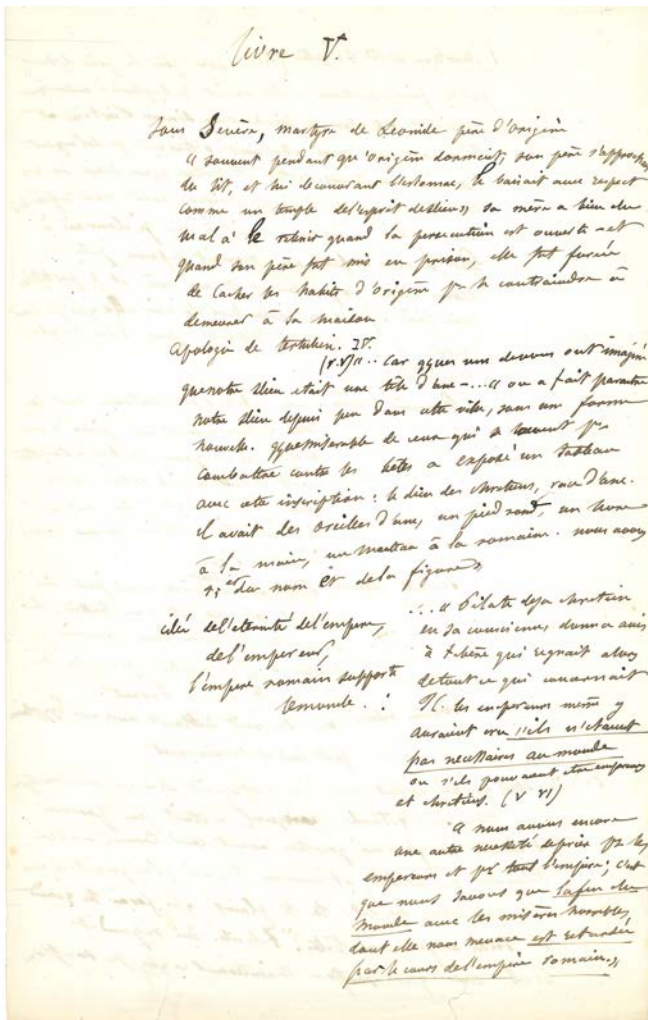 livre V.
Sous Sévère, martyre de Leonide père d'origène
« souvent pendant qu'origène dormait, son père s'approchait
du lit, et lui decouvrant l'estomac, le baisait avec respect
comme un temple de l'esprit de dieu » sa mère a bien du
mal à le retenir quand la persécution est ouverte - et
quand son père fut mis en prison, elle fut forcée
de cacher les habits d'origène pr le contraindre à
demeurer à la maison.
apologie de tertullien. IV.
(V.V) « .. Car qques uns de vous ont imaginé
que notre dieu etait une tête d'ane - ... « on a fait paraitre
notre dieu depuis peu dans cette ville, sous une forme
nouvelle. qque miserable de ceux qui se louent pr
combattre contre les bêtes a exposé un tableau
avec cette inscription : le dieu des chretiens, race d'ane.
il avait des oreilles d'ane, un pied rond, un livre
à la main, un manteau à la romaine. nous avons
ri et du nom et de la figure »
idée de l'eternité de l'empire,
de l'empereur,
l'empire romain supporte
le monde . :
... « Pilate deja chretien
en sa conscience donna avis
à tibère qui regnait alors
de tout ce qui concernait
J.C. les empereurs même y
auraient cru s'ils n'etaient
pas necessaires au monde
ou s'ils pouvaient etre empereurs
et chretiens. (V VI)
nous avons encore
une autre necessité de prier pr les
empereurs et pr tout l'empire ; c'est
que nous savons que la fin du
monde avec les misères horribles
dont elle nous menace est retardée
par le cours de l'empire romain. »